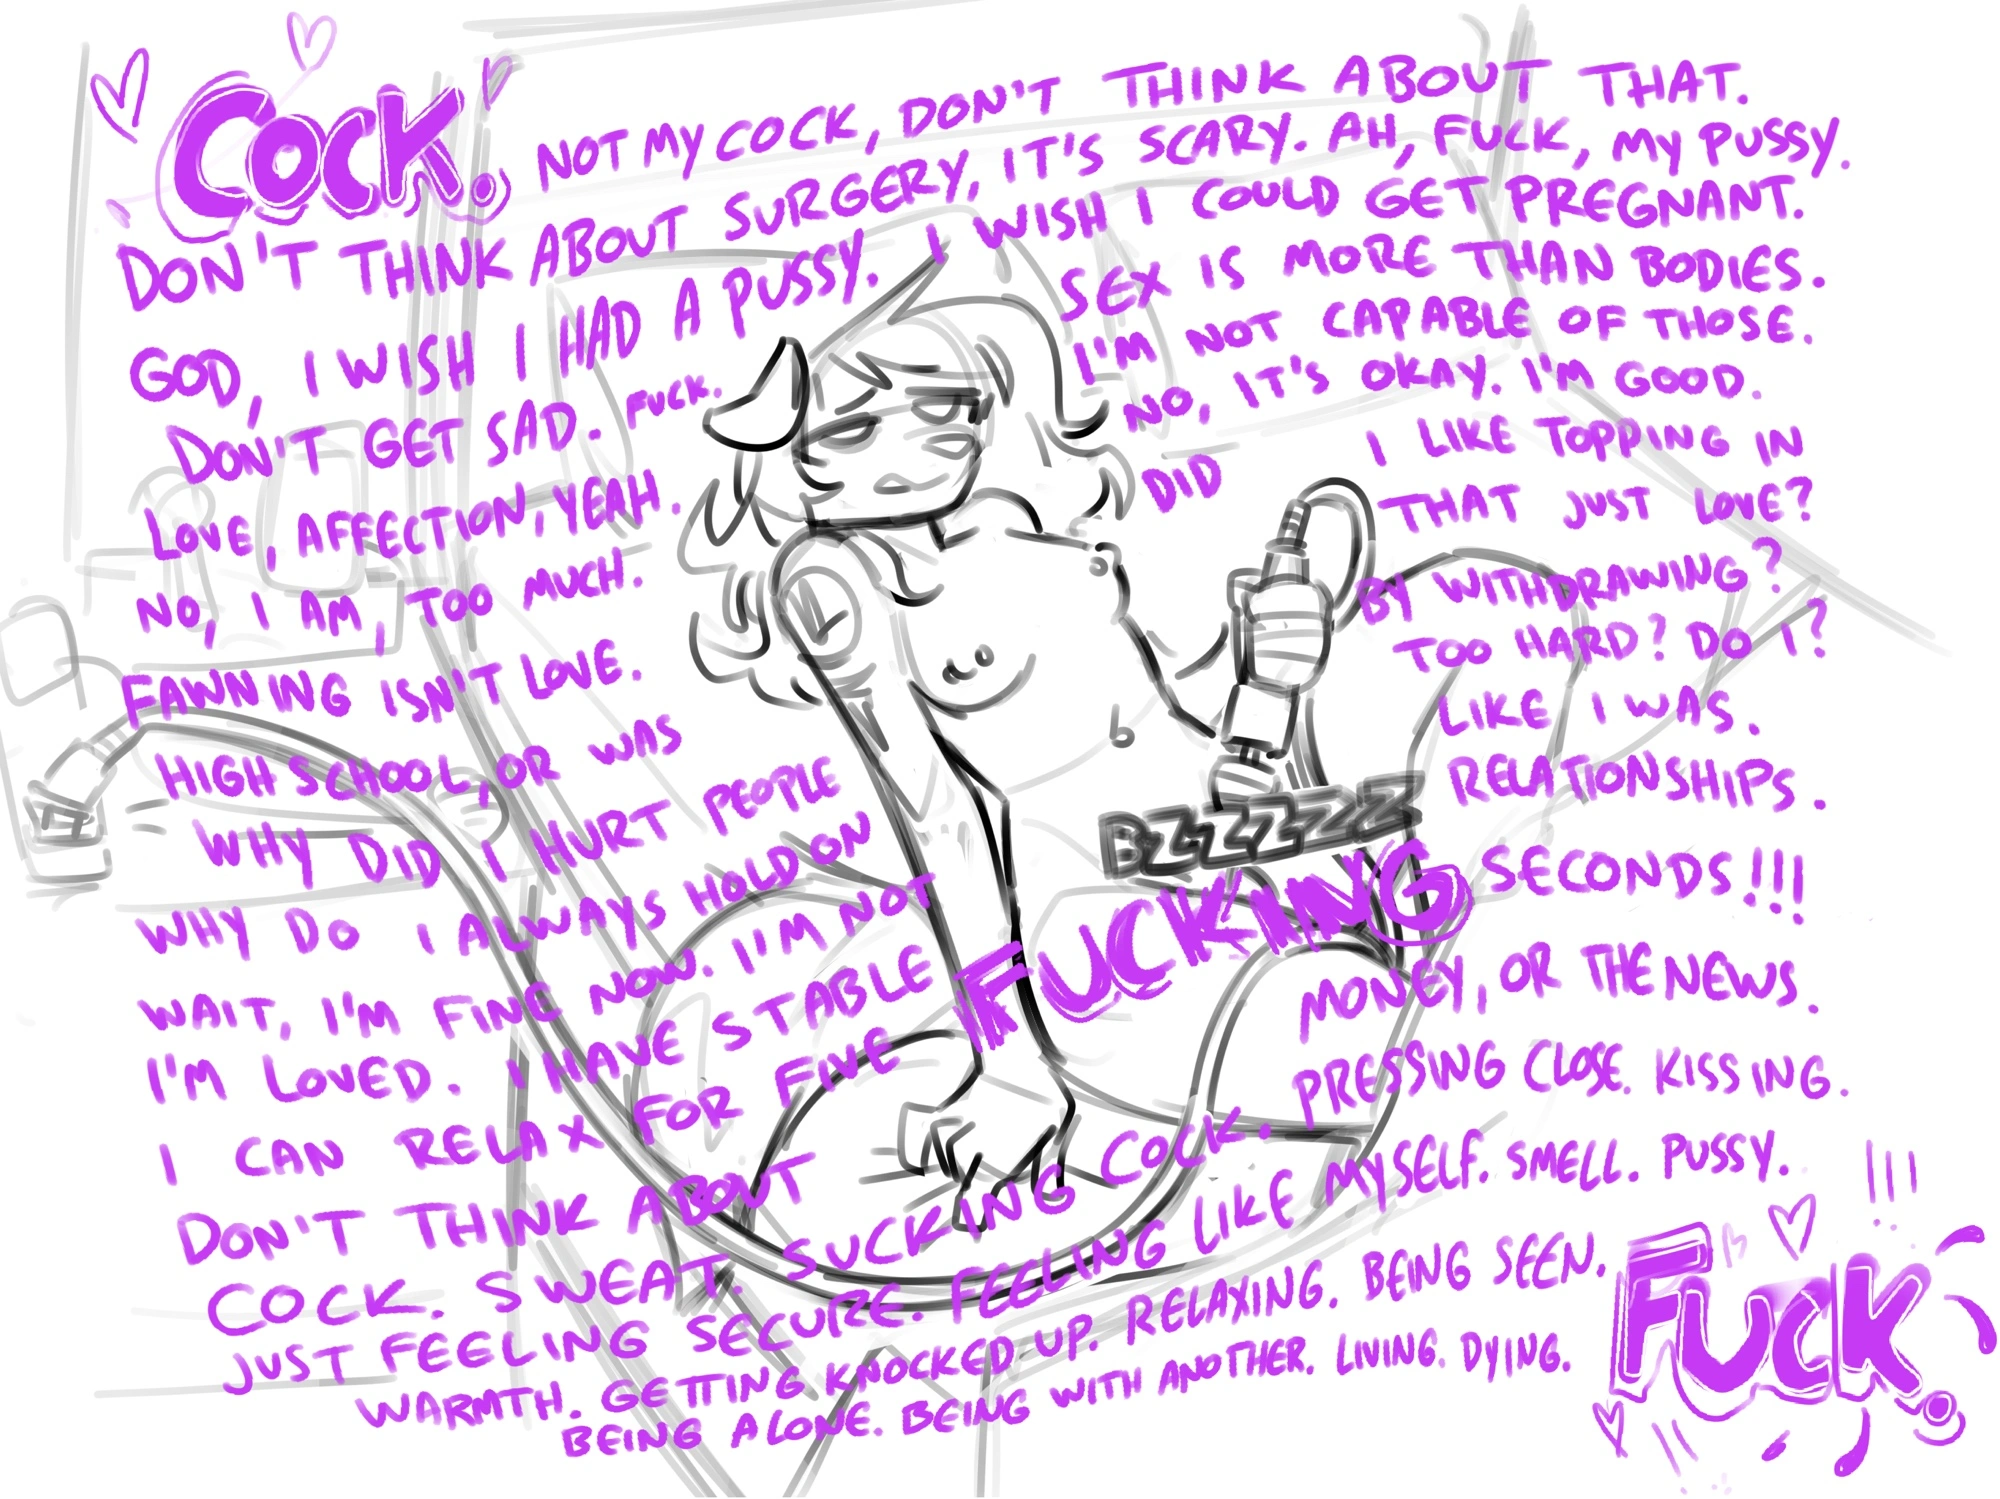 COCK. NOT MY COCK, DON'T THINK ABOUT THAT.
DON'T THINK ABOUT SURGERY, IT'S SCARY. AH, FUCK, MY PUSSY.
GOD, I WISH I HAD A PUSSY. I WISH I COULD GET PREGNANT.
DON'T GET SAD. FUCK. SEX IS MORE THAN BODIES.
LOVE, AFFECTION, YEAH. I'M NOT CAPABLE OF THOSE.
NO, I AM, TOO MUCH. NO, IT'S OKAY. I'M GOOD.
FAWNING ISN'T LOVE. DID I LIKE TOPPING IN
HIGH SCHOOL, OR WAS THAT JUST LOVE?
WHY DID I HURT PEOPLE BY WITHDRAWING?
WHY DO I ALWAYS HOLD ON TOO HARD? DO I?
WAIT, I'M FINE NOW. I'M NOT LIKE I WAS.
I'M LOVED. I HAVE STABLE RELATIONSHIPS.
BZZZZZZ
I CAN RELAX FOR FIVE FUCKING SECONDS!!!
DON'T THINK ABOUT MONEY, OR THE NEWS.
COCK. SWEAT. SUCKING COCK. PRESSING CLOSE. KISSING.
JUST FEELING SECURE. FEELING LIKE MYSELF. SMELL. PUSSY.
WARMTH. GETTING KNOCKED UP. RELAXING. BEING SEEN.
BEING ALONE. BEING WITH ANOTHER. LIVING. DYING.
FUCK.